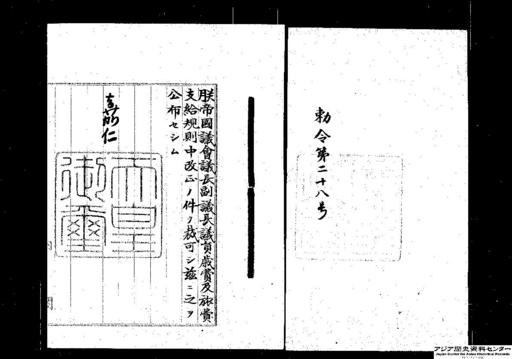 勅令第二十八号
朕帝國議會議長副議長議員歳費及旅費
支給規則中改正ノ件ヲ裁可シ茲ニ之ヲ
公布セシム
嘉仁
天皇
御璽
アジア歴史資料センター
Japan Center for Asian Historical Records